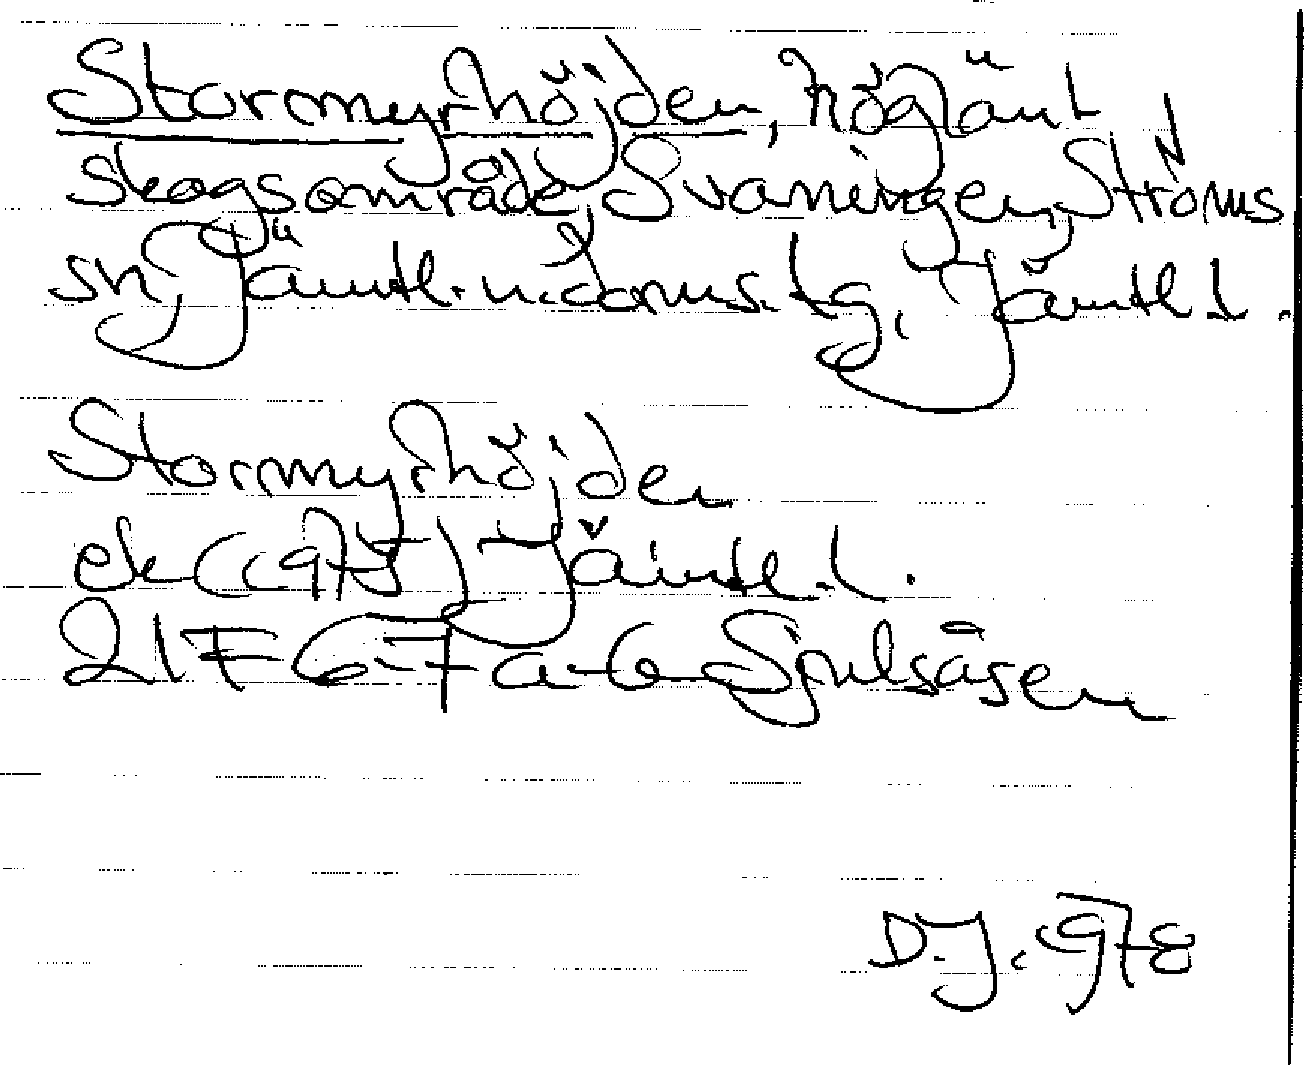 Stormyrhöjden, höglänt
skogsområde, Svaningen, Ströms
sn, Jämtl. n. doms. tg, Jämtl. l.
Stormyrhöjden
ek (1975) Jämtl. l.
21F 6-7 a-b Sjulsåsen
D.J. 1978